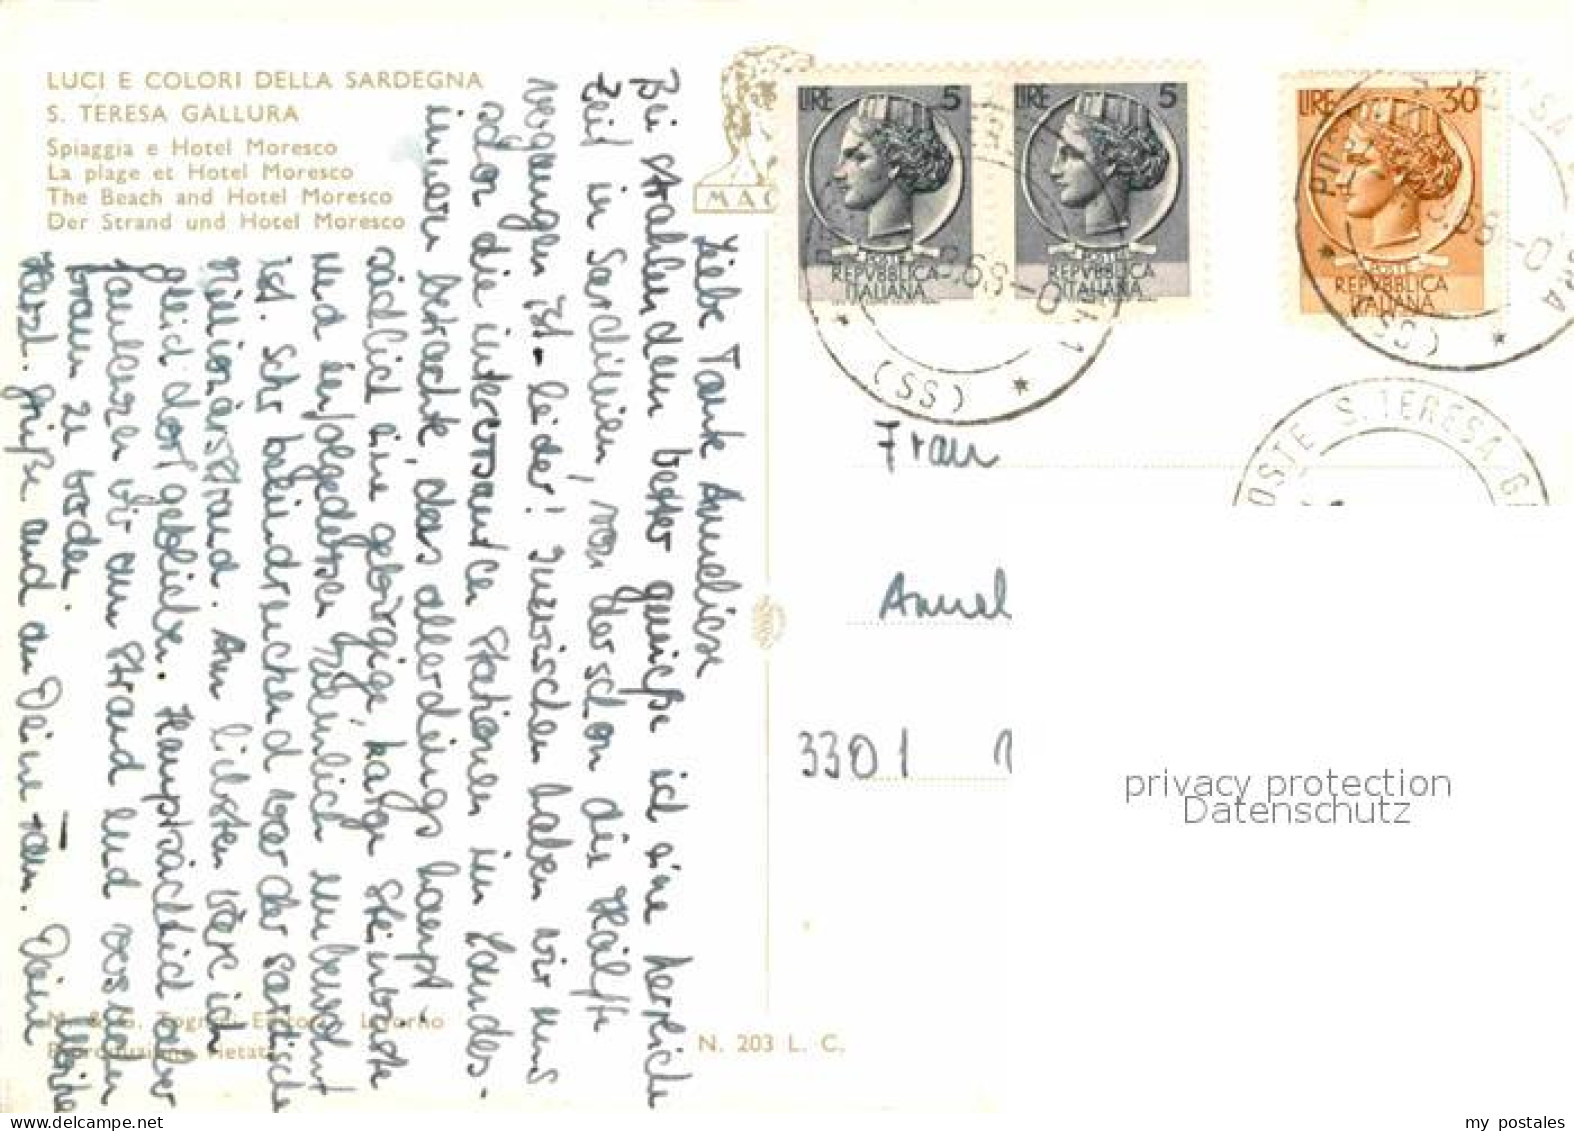 LUCI E COLORI DELLA SARDEGNA
S. TERESA GALLURA
Spiaggia e Hotel Moresco
La plage et Hotel Moresco
The Beach and Hotel Moresco
Der Strand und Hotel Moresco
Liebe Tante Anneliese
Bei strahlendem Wetter genieße ich eine herrliche
Zeit in Sardinien, von der schon die Hälfte
vergangen ist - leider! Inzwischen haben wir uns
schon die interessanten Stationen im Landes-
innern betrachtet, das allerdings haupt-
sächlich eine gebirgige, karge Steinwüste
und infolgedessen ziemlich unbewohnt
ist. Sehr beeindruckend war der sardische
Millionärsstrand. Am liebsten wäre ich
gleich dort geblieben. Hauptsächlich aber
faulenzen wir am Strand und versuchen
braun zu werden.
Herzl. Grüße auch an Deine Fam. Deine
N. & G. Togn Livorno
N. 203 L. C.
MAC
LIRE 5
REPVBBLICA
ITALIANA
LIRE 5
POSTE
REPVBBLICA
ITALIANA
LIRE 30
POSTE
REPVBBLICA
ITALIANA
(SS)
(SS)
POSTE S. TERESA GA
Frau
Annel
3301
privacy protection
Datenschutz
my postales